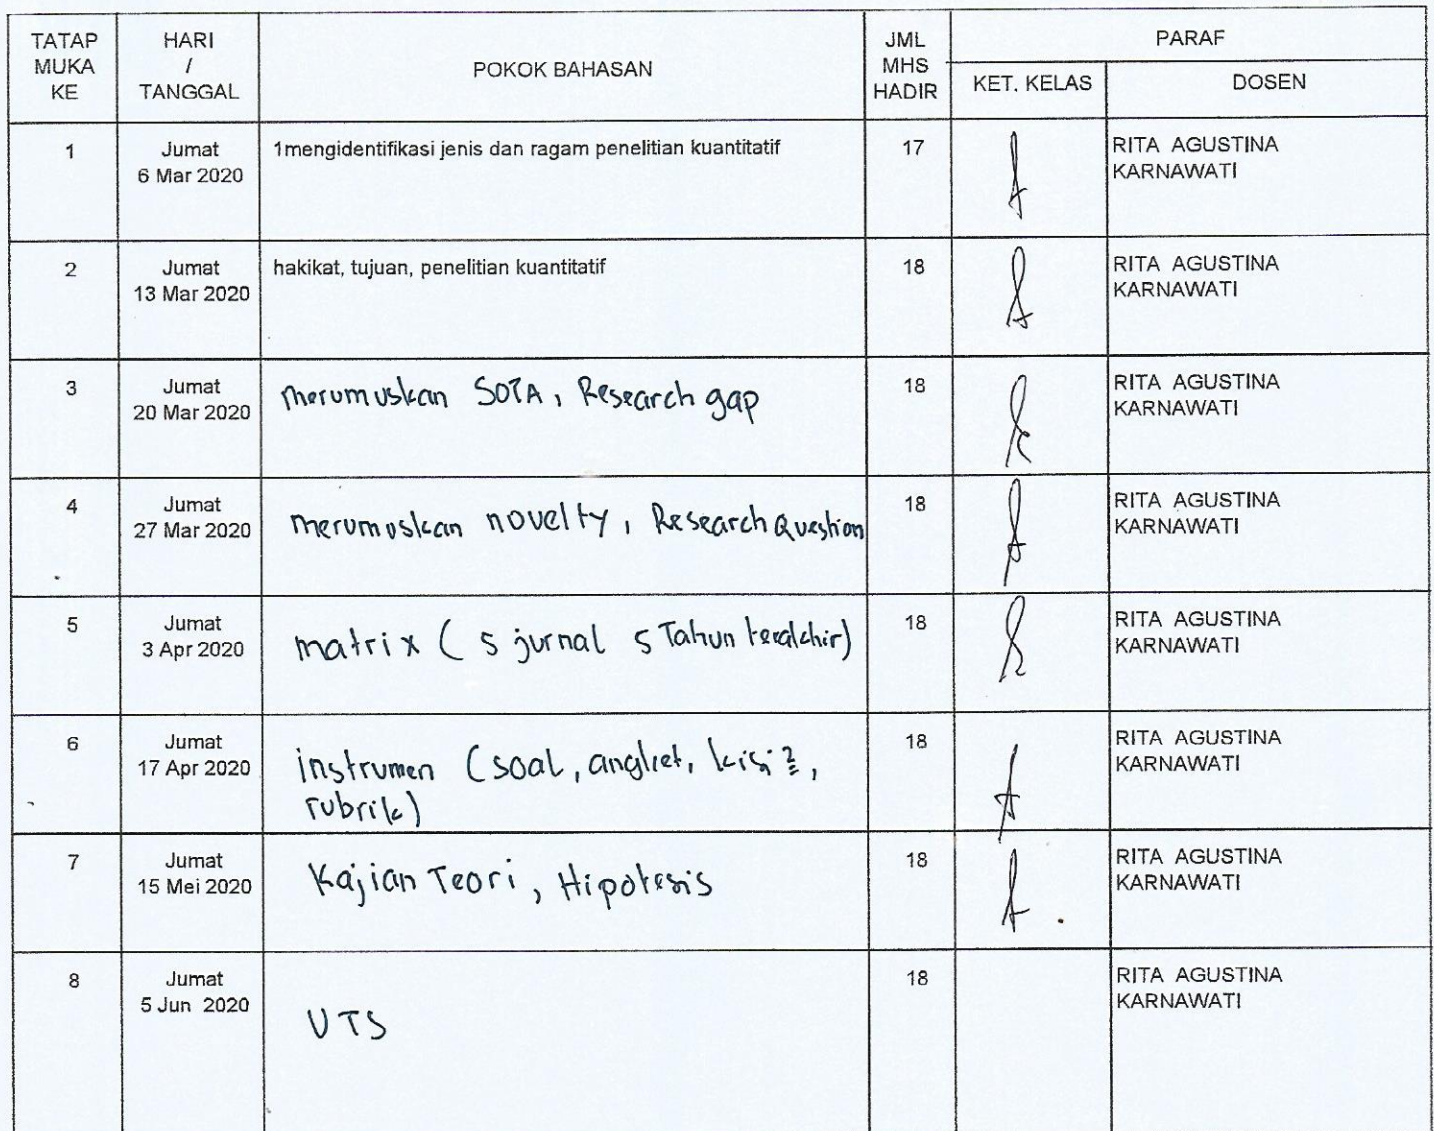 TATAP MUKA KE | HARI / TANGGAL | POKOK BAHASAN | JML MHS HADIR | PARAF
KET. KELAS | DOSEN
1 | Jumat 6 Mar 2020 | 1mengidentifikasi jenis dan ragam penelitian kuantitatif | 17 | RITA AGUSTINA KARNAWATI
2 | Jumat 13 Mar 2020 | hakikat, tujuan, penelitian kuantitatif | 18 | RITA AGUSTINA KARNAWATI
3 | Jumat 20 Mar 2020 | merumuskan SOTA, Research gap | 18 | RITA AGUSTINA KARNAWATI
4 | Jumat 27 Mar 2020 | merumuskan novelty, Research Question | 18 | RITA AGUSTINA KARNAWATI
5 | Jumat 3 Apr 2020 | matrix ( 5 jurnal 5 Tahun terakhir) | 18 | RITA AGUSTINA KARNAWATI
6 | Jumat 17 Apr 2020 | instrumen (soal, angket, kisi2, rubrik) | 18 | RITA AGUSTINA KARNAWATI
7 | Jumat 15 Mei 2020 | Kajian Teori, Hipotesis | 18 | RITA AGUSTINA KARNAWATI
8 | Jumat 5 Jun 2020 | UTS | 18 | RITA AGUSTINA KARNAWATI